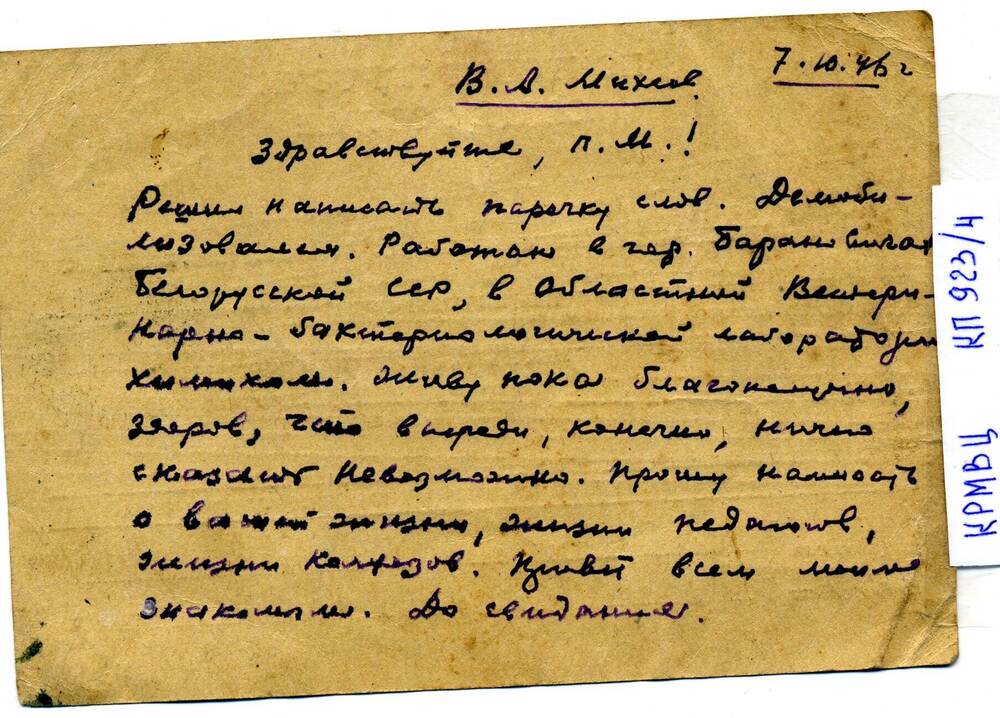 7.10.46 г
В. А. Михеев
Здравствуйте, П.М.!
Решил написать парочку слов. Демоби-
лизовался. Работаю в гор. Барановичах
Белорусской ССР, в Областной Ветери-
нарно-бактериологической лаборатории
химиком. Живу пока благополучно,
здоров, что впереди, конечно, ничего
сказать невозможно. Прошу написать
о вашей жизни, жизни педагогов,
жизни колхозов. Привет всем моим
знакомым. До свидания.
КРМВЦ КП 923/4